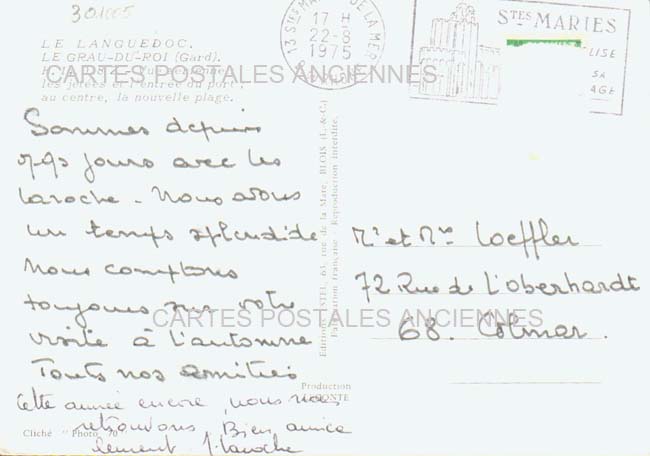 301005
LE LANGUEDOC.
LE GRAU-DU-ROI (Gard).
CARTES POSTALES ANCIENNES
les jetées et l'entrée du port ;
au centre, la nouvelle plage.
13 STES MARIES DE LA MER
17 H
22-8
1975
STES MARIES
SA
Sommes depuis
qqs jours avec les
Laroche - Nous avons
un temps splendide
Nous comptons
toujours sur votre
visite à l'automne
Toutes nos amitiés
Cette année encore, nous nous
retrouvons. Bien amica
lement J. Laroche
Cliché "Photo 70"
Editions ESTEL, 63, rue de la Mare, BLOIS (L.-&-C.)
Fabrication française. Reproduction interdite.
Production
LECONTE
Mr et Mme Loeffler
72 Rue de l'Oberhardt
CARTES POSTALES ANCIENNES
68. Colmar.